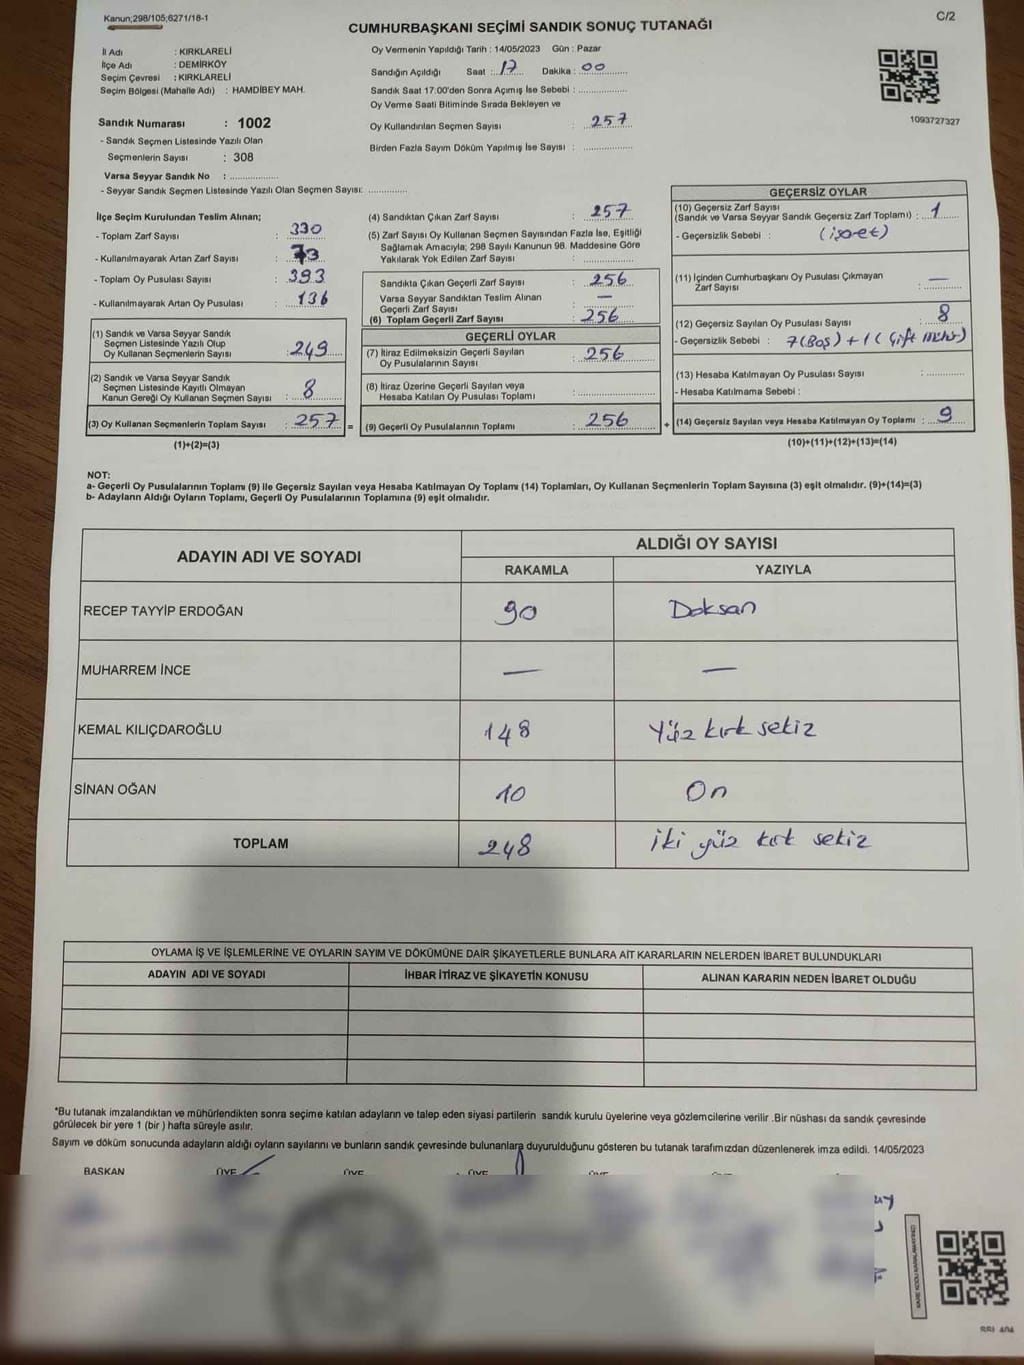 Kanun;298/105;6271/18-1
C/2
CUMHURBAŞKANI SEÇİMİ SANDIK SONUÇ TUTANAĞI
İl Adı : KIRKLARELİ
İlçe Adı : DEMİRKÖY
Seçim Çevresi : KIRKLARELİ
Seçim Bölgesi (Mahalle Adı) : HAMDİBEY MAH.
Sandık Numarası : 1002
- Sandık Seçmen Listesinde Yazılı Olan
Seçmenlerin Sayısı : 308
Varsa Seyyar Sandık No : ..............
- Seyyar Sandık Seçmen Listesinde Yazılı Olan Seçmen Sayısı: ............
Oy Vermenin Yapıldığı Tarih : 14/05/2023 Gün : Pazar
Sandığın Açıldığı Saat : 17 Dakika : 00
Sandık Saat 17:00'den Sonra Açımış İse Sebebi : ..............
Oy Verme Saati Bitiminde Sırada Bekleyen ve
Oy Kullandırılan Seçmen Sayısı : 257
Birden Fazla Sayım Döküm Yapılmış İse Sayısı : ..............
1093727327
İlçe Seçim Kurulundan Teslim Alınan;
- Toplam Zarf Sayısı : 330
- Kullanılmayarak Artan Zarf Sayısı : 73
- Toplam Oy Pusulası Sayısı : 393
- Kullanılmayarak Artan Oy Pusulası : 136
(1) Sandık ve Varsa Seyyar Sandık
Seçmen Listesinde Yazılı Olup
Oy Kullanan Seçmenlerin Sayısı : 249
(2) Sandık ve Varsa Seyyar Sandık
Seçmen Listesinde Kayıtlı Olmayan
Kanun Gereği Oy Kullanan Seçmen Sayısı : 8
(3) Oy Kullanan Seçmenlerin Toplam Sayısı : 257 =
(1)+(2)=(3)
(4) Sandıktan Çıkan Zarf Sayısı : 257
(5) Zarf Sayısı Oy Kullanan Seçmen Sayısından Fazla İse, Eşitliği
Sağlamak Amacıyla; 298 Sayılı Kanunun 98. Maddesine Göre
Yakılarak Yok Edilen Zarf Sayısı : ..............
Sandıkta Çıkan Geçerli Zarf Sayısı : 256
Varsa Seyyar Sandıktan Teslim Alınan
Geçerli Zarf Sayısı : —
(6) Toplam Geçerli Zarf Sayısı : 256
GEÇERLİ OYLAR
(7) İtiraz Edilmeksizin Geçerli Sayılan
Oy Pusulalarının Sayısı : 256
(8) İtiraz Üzerine Geçerli Sayılan veya
Hesaba Katılan Oy Pusulası Toplamı : ..............
(9) Geçerli Oy Pusulalarının Toplamı : 256 +
GEÇERSİZ OYLAR
(10) Geçersiz Zarf Sayısı
(Sandık ve Varsa Seyyar Sandık Geçersiz Zarf Toplamı) : 1
- Geçersizlik Sebebi : (işaret)
(11) İçinden Cumhurbaşkanı Oy Pusulası Çıkmayan
Zarf Sayısı : —
(12) Geçersiz Sayılan Oy Pusulası Sayısı : 8
- Geçersizlik Sebebi : 7(Boş) + 1 ( Çift mühür)
(13) Hesaba Katılmayan Oy Pusulası Sayısı : ............
- Hesaba Katılmama Sebebi :
(14) Geçersiz Sayılan veya Hesaba Katılmayan Oy Toplamı : 9
(10)+(11)+(12)+(13)=(14)
NOT:
a- Geçerli Oy Pusulalarının Toplamı (9) ile Geçersiz Sayılan veya Hesaba Katılmayan Oy Toplamı (14) Toplamları, Oy Kullanan Seçmenlerin Toplam Sayısına (3) eşit olmalıdır. (9)+(14)=(3)
b- Adayların Aldığı Oyların Toplamı, Geçerli Oy Pusulalarının Toplamına (9) eşit olmalıdır.
ADAYIN ADI VE SOYADI
ALDIĞI OY SAYISI
RAKAMLA YAZIYLA
RECEP TAYYİP ERDOĞAN 90 Doksan
MUHARREM İNCE — —
KEMAL KILIÇDAROĞLU 148 Yüz kırk sekiz
SİNAN OĞAN 10 On
TOPLAM 248 iki yüz kırk sekiz
OYLAMA İŞ VE İŞLEMLERİNE VE OYLARIN SAYIM VE DÖKÜMÜNE DAİR ŞİKAYETLERLE BUNLARA AİT KARARLARIN NELERDEN İBARET BULUNDUKLARI
ADAYIN ADI VE SOYADI İHBAR İTİRAZ VE ŞİKAYETİN KONUSU ALINAN KARARIN NEDEN İBARET OLDUĞU
*Bu tutanak imzalandıktan ve mühürlendikten sonra seçime katılan adayların ve talep eden siyasi partilerin sandık kurulu üyelerine veya gözlemcilerine verilir .Bir nüshası da sandık çevresinde
görülecek bir yere 1 (bir ) hafta süreyle asılır.
Sayım ve döküm sonucunda adayların aldığı oyların sayılarını ve bunların sandık çevresinde bulunanlara duyurulduğunu gösteren bu tutanak tarafımızdan düzenlenerek imza edildi. 14/05/2023
BAŞKAN ÜYE ÜYE ÜYE ÜYE
KARE KODU KARALAMAYINIZ!